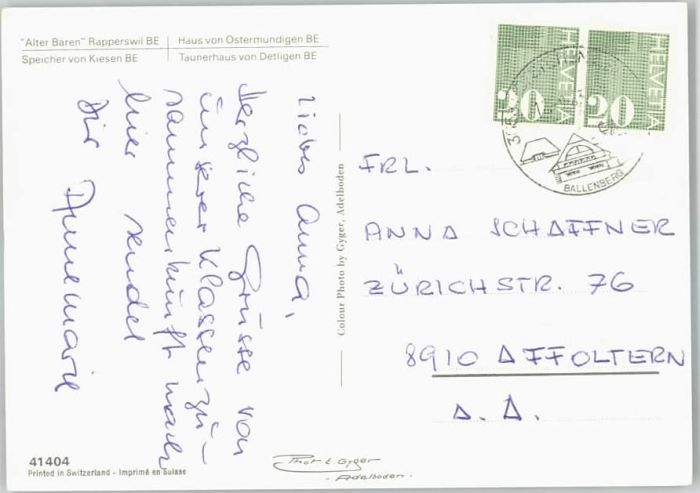 "Alter Bären" Rapperswil BE
Speicher von Kiesen BE
Haus von Ostermundigen BE
Taunerhaus von Detligen BE
Liebe Anna,
Herzliche Grüsse von
unserer Klassenzu-
sammenkunft
hier sendet
Dir Annemarie
Colour Photo by Gyger, Adelboden
HELVETIA
20
HELVETIA
20
BALLENBERG
FRL.
ANNA SCHAFFNER
ZÜRICHSTR. 76
8910 AFFOLTERN
A. A.
41404
Printed in Switzerland - Imprimé en Suisse
Phot E. Gyger
- Adelboden -